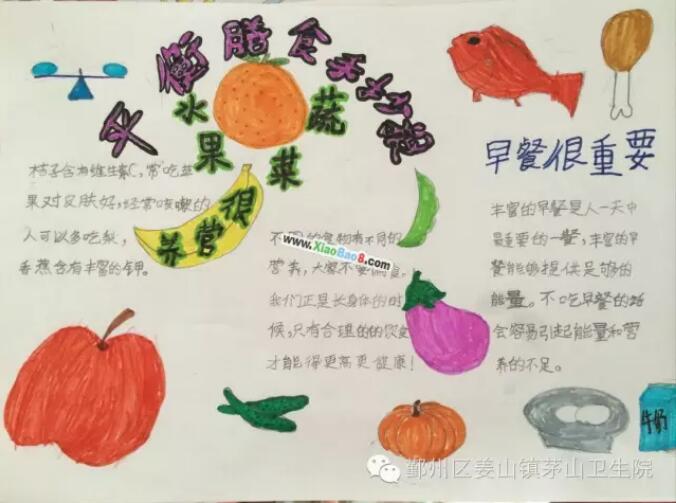 平衡膳食
水果蔬菜
很营养
桔子含有维生素C,常吃苹
果对皮肤好,经常咳嗽的
人可以多吃梨,
香蕉含有丰富的钾。
不同的食物有不同的
营养,大家不要偏食,
我们正是长身体的时
候,只有合理的的饮食
才能得更高更健康!
早餐很重要
丰富的早餐是人一天中
最重要的一餐,丰富的早
餐能够提供足够的
能量。不吃早餐的话
会容易引起能量和营
养的不足。
牛奶
www.XiaoBao8.com
鄞州区姜山镇茅山卫生院